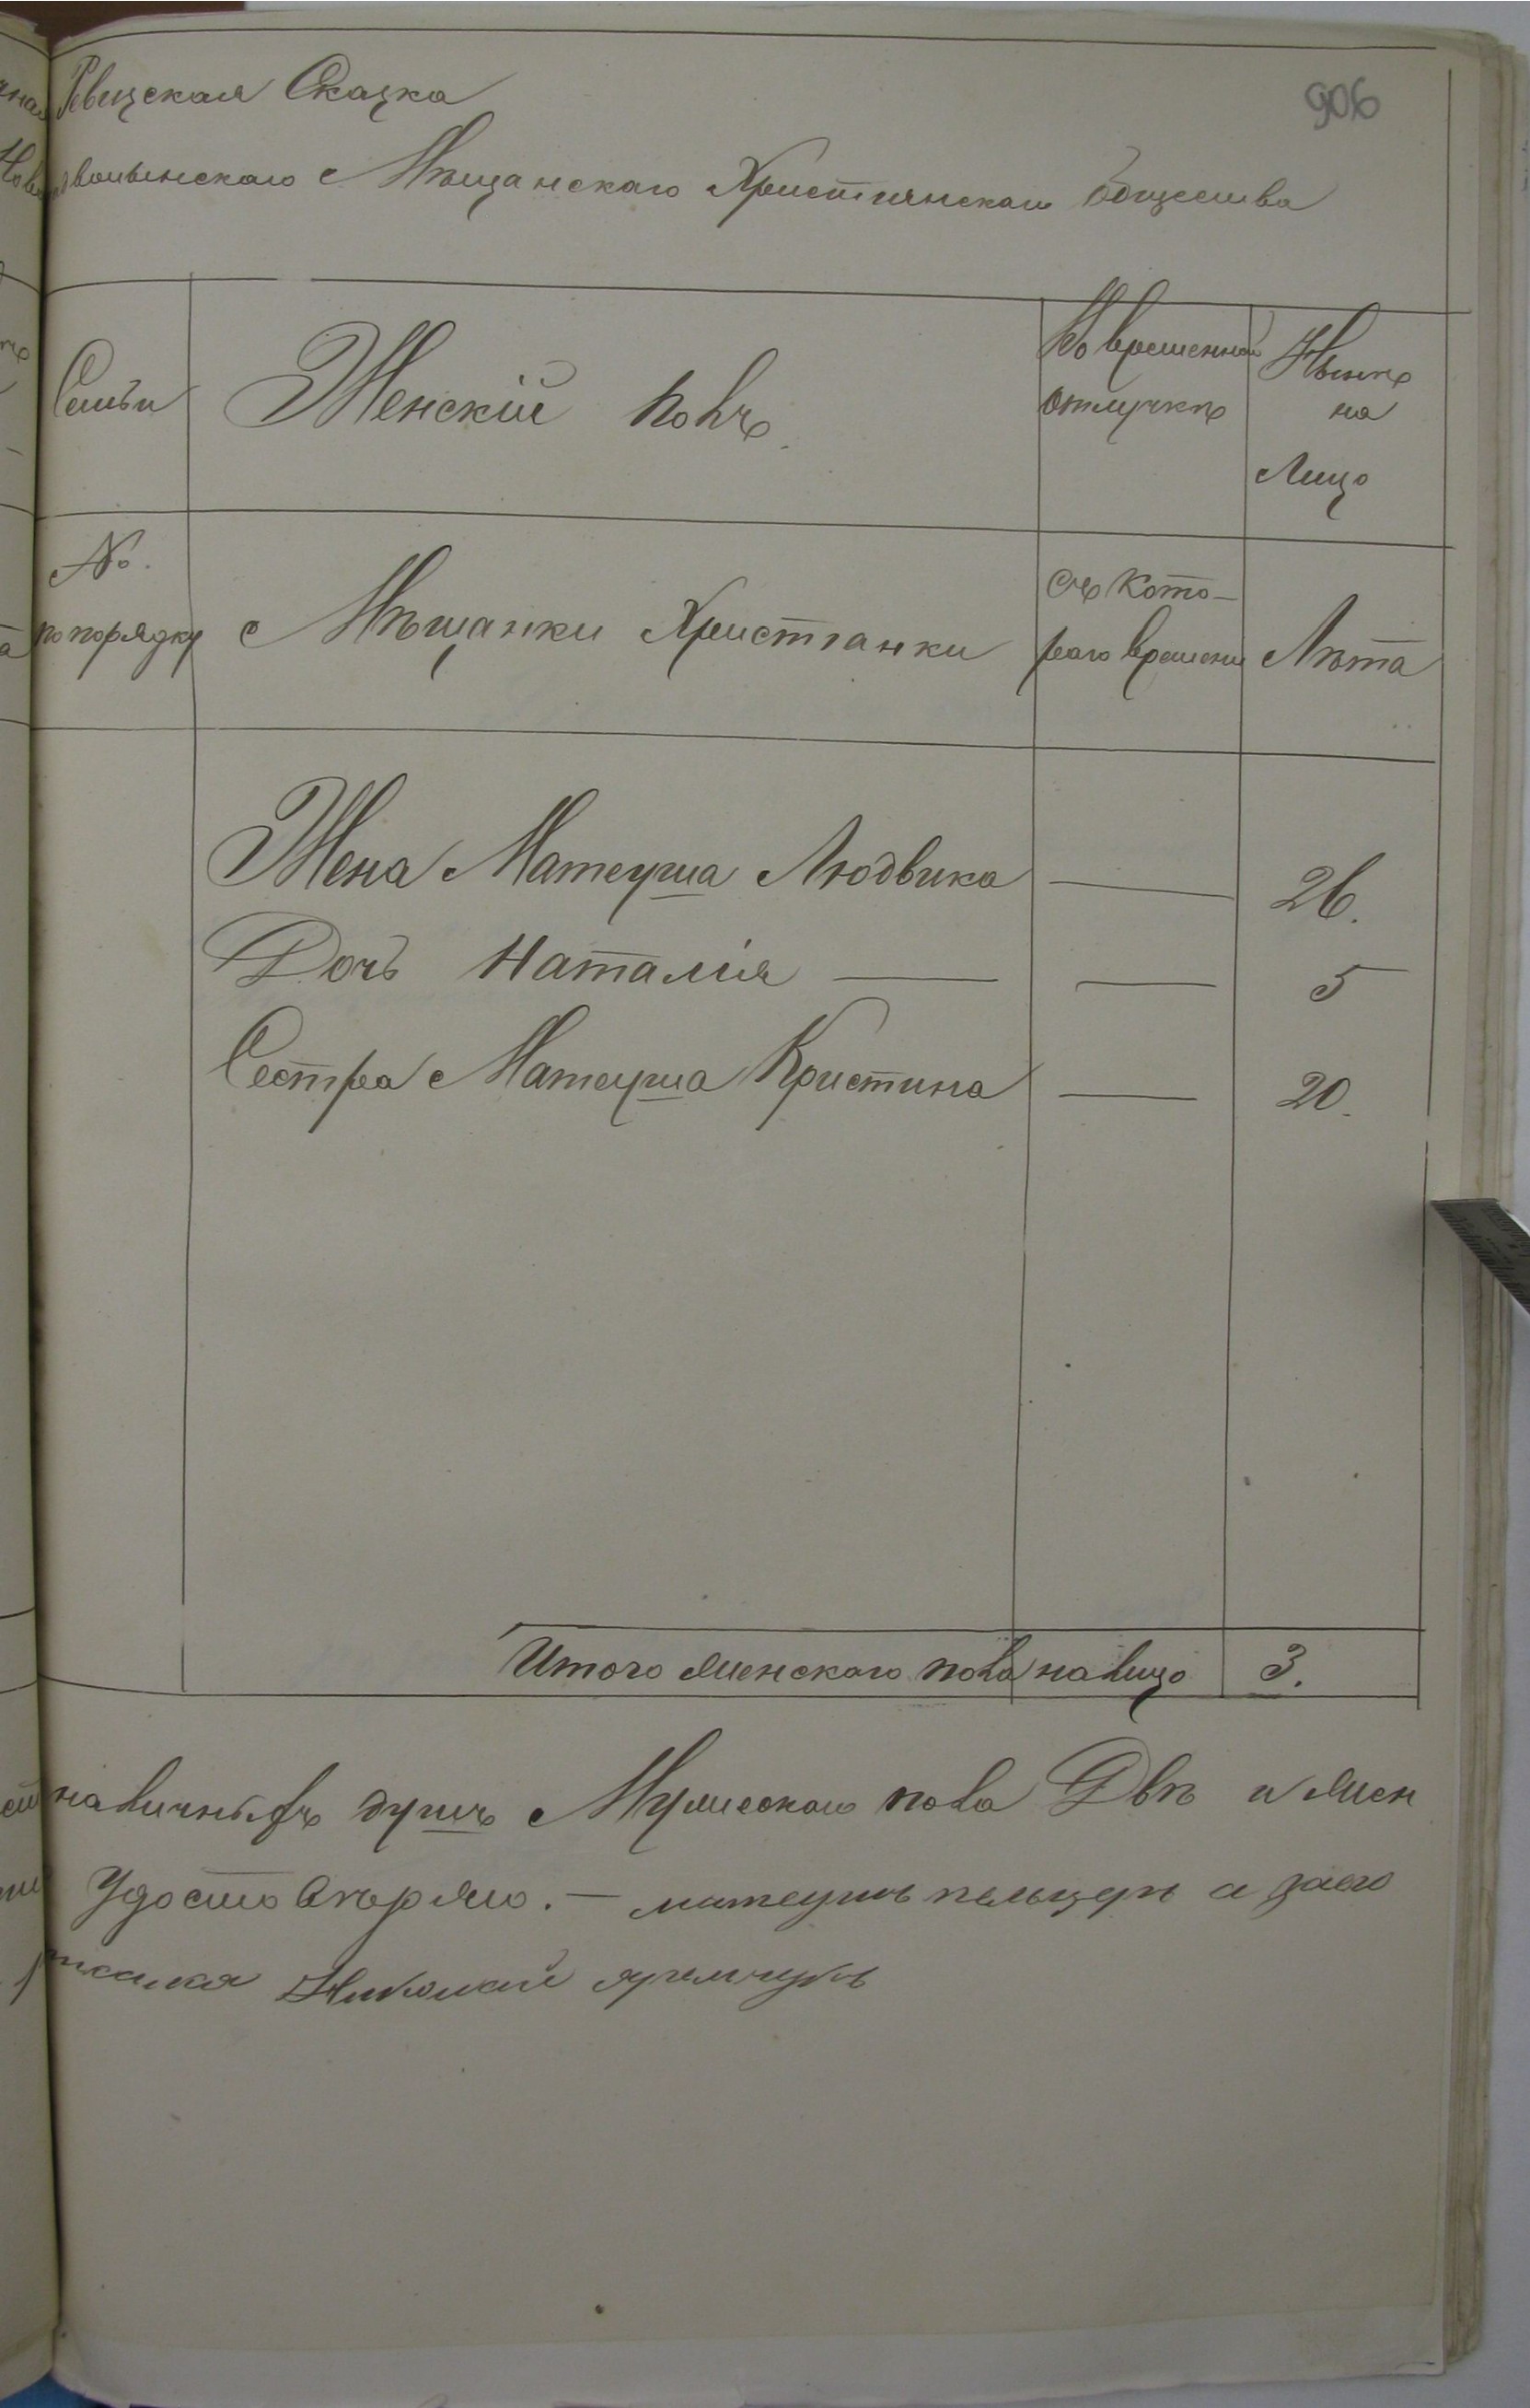 906
Ревизская Сказка
волынского Мѣщанскаго Християнскаго Общества
Семьи
Женскій полъ.
Во временной
отлучкѣ
Нынѣ
на
Лицо
№.
по порядку
Мѣщанки Христіанки
Съ кото-
раго времени
Лѣта
Жена Матеуша Людвика — 26.
Дочь Наталія — — 5
Сестра Матеуша Кристина — 20.
Итого женскаго пола на лицо 3.
наличныхъ душъ Мужескаго пола Двѣ и жен
Удостовѣряю. — матеушъ пельцеръ а за его
Николай яремчукъ